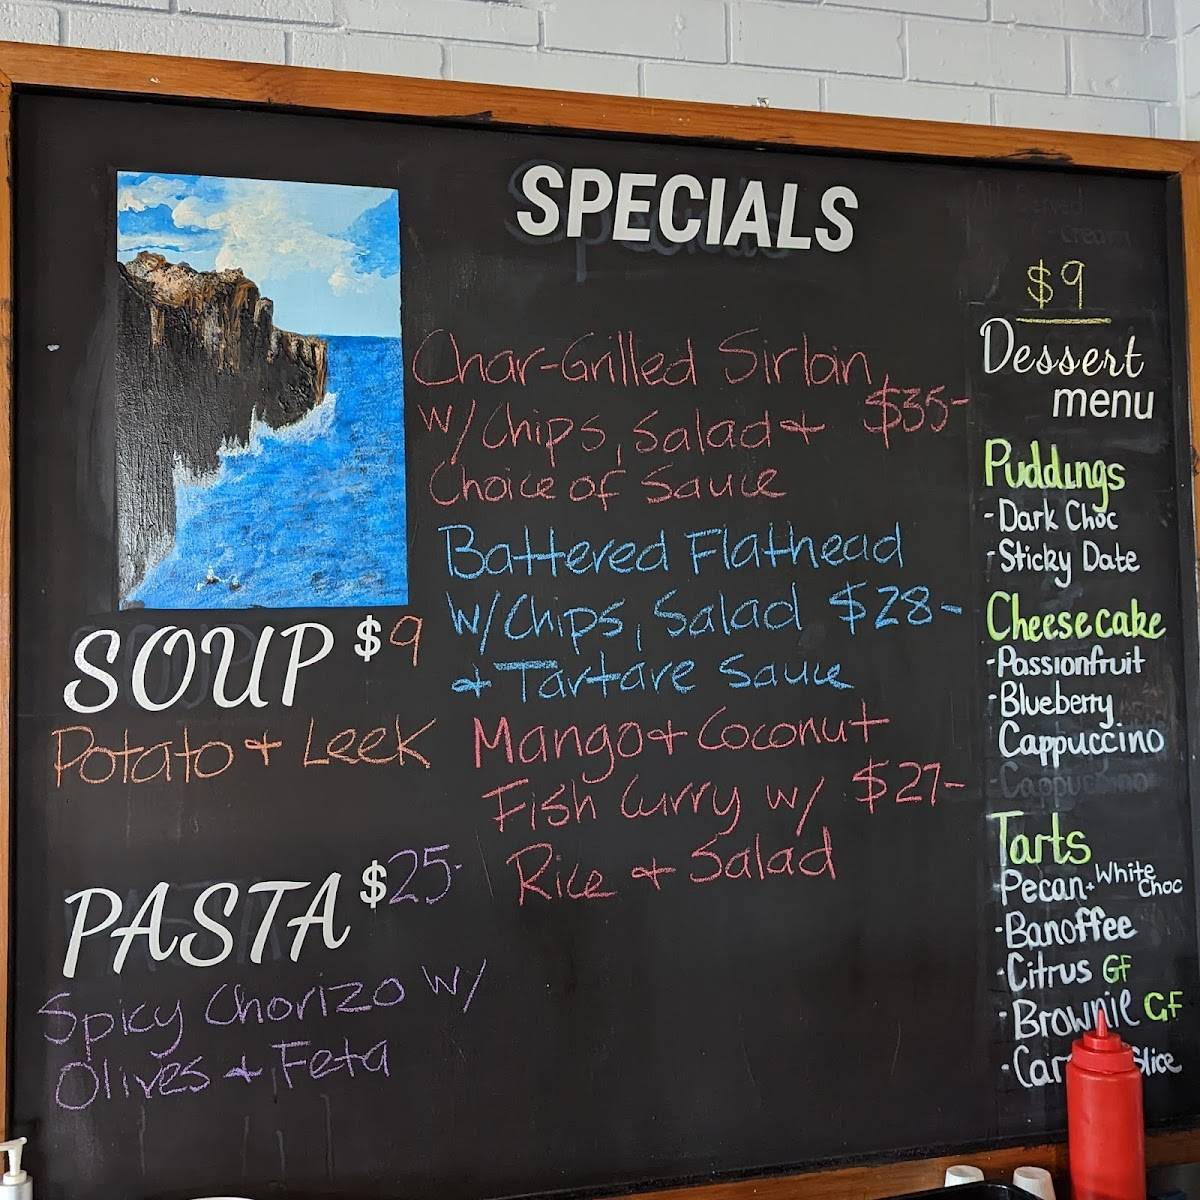 SPECIALS
Char-Grilled Sirloin
w/ Chips, Salad + $35-
Choice of Sauce
Battered Flathead
w/ Chips, Salad $28-
+ Tartare Sauce
Mango + Coconut
Fish Curry w/ $27-
Rice + Salad
SOUP $9
Potato + Leek
PASTA $25-
Spicy Chorizo w/
Olives + Feta
$9
Dessert
menu
Puddings
- Dark Choc
- Sticky Date
Cheesecake
- Passionfruit
- Blueberry
Cappuccino
- Cappuccino
Tarts
Pecan + White Choc
- Banoffee
- Citrus GF
- Brownie GF
- Slice